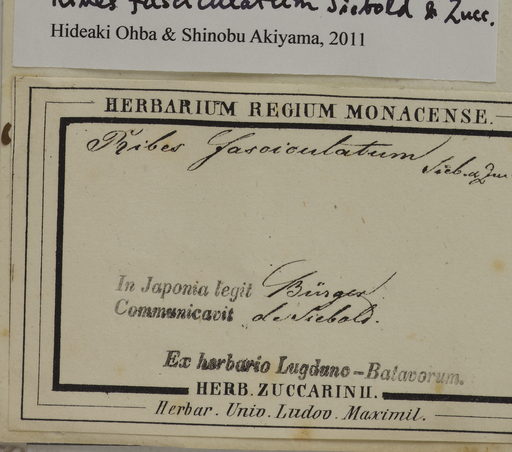 Ribes fasciculatum Siebold & Zucc.
Hideaki Ohba & Shinobu Akiyama, 2011
HERBARIUM REGIUM MONACENSE.
Ribes fasciculatum
Sieb. & Zuc
In Japonia legit Bürger.
Communicavit de Siebold.
Ex herbario Lugduno-Batavorum.
HERB. ZUCCARINII.
Herbar. Univ. Ludov. Maximil.